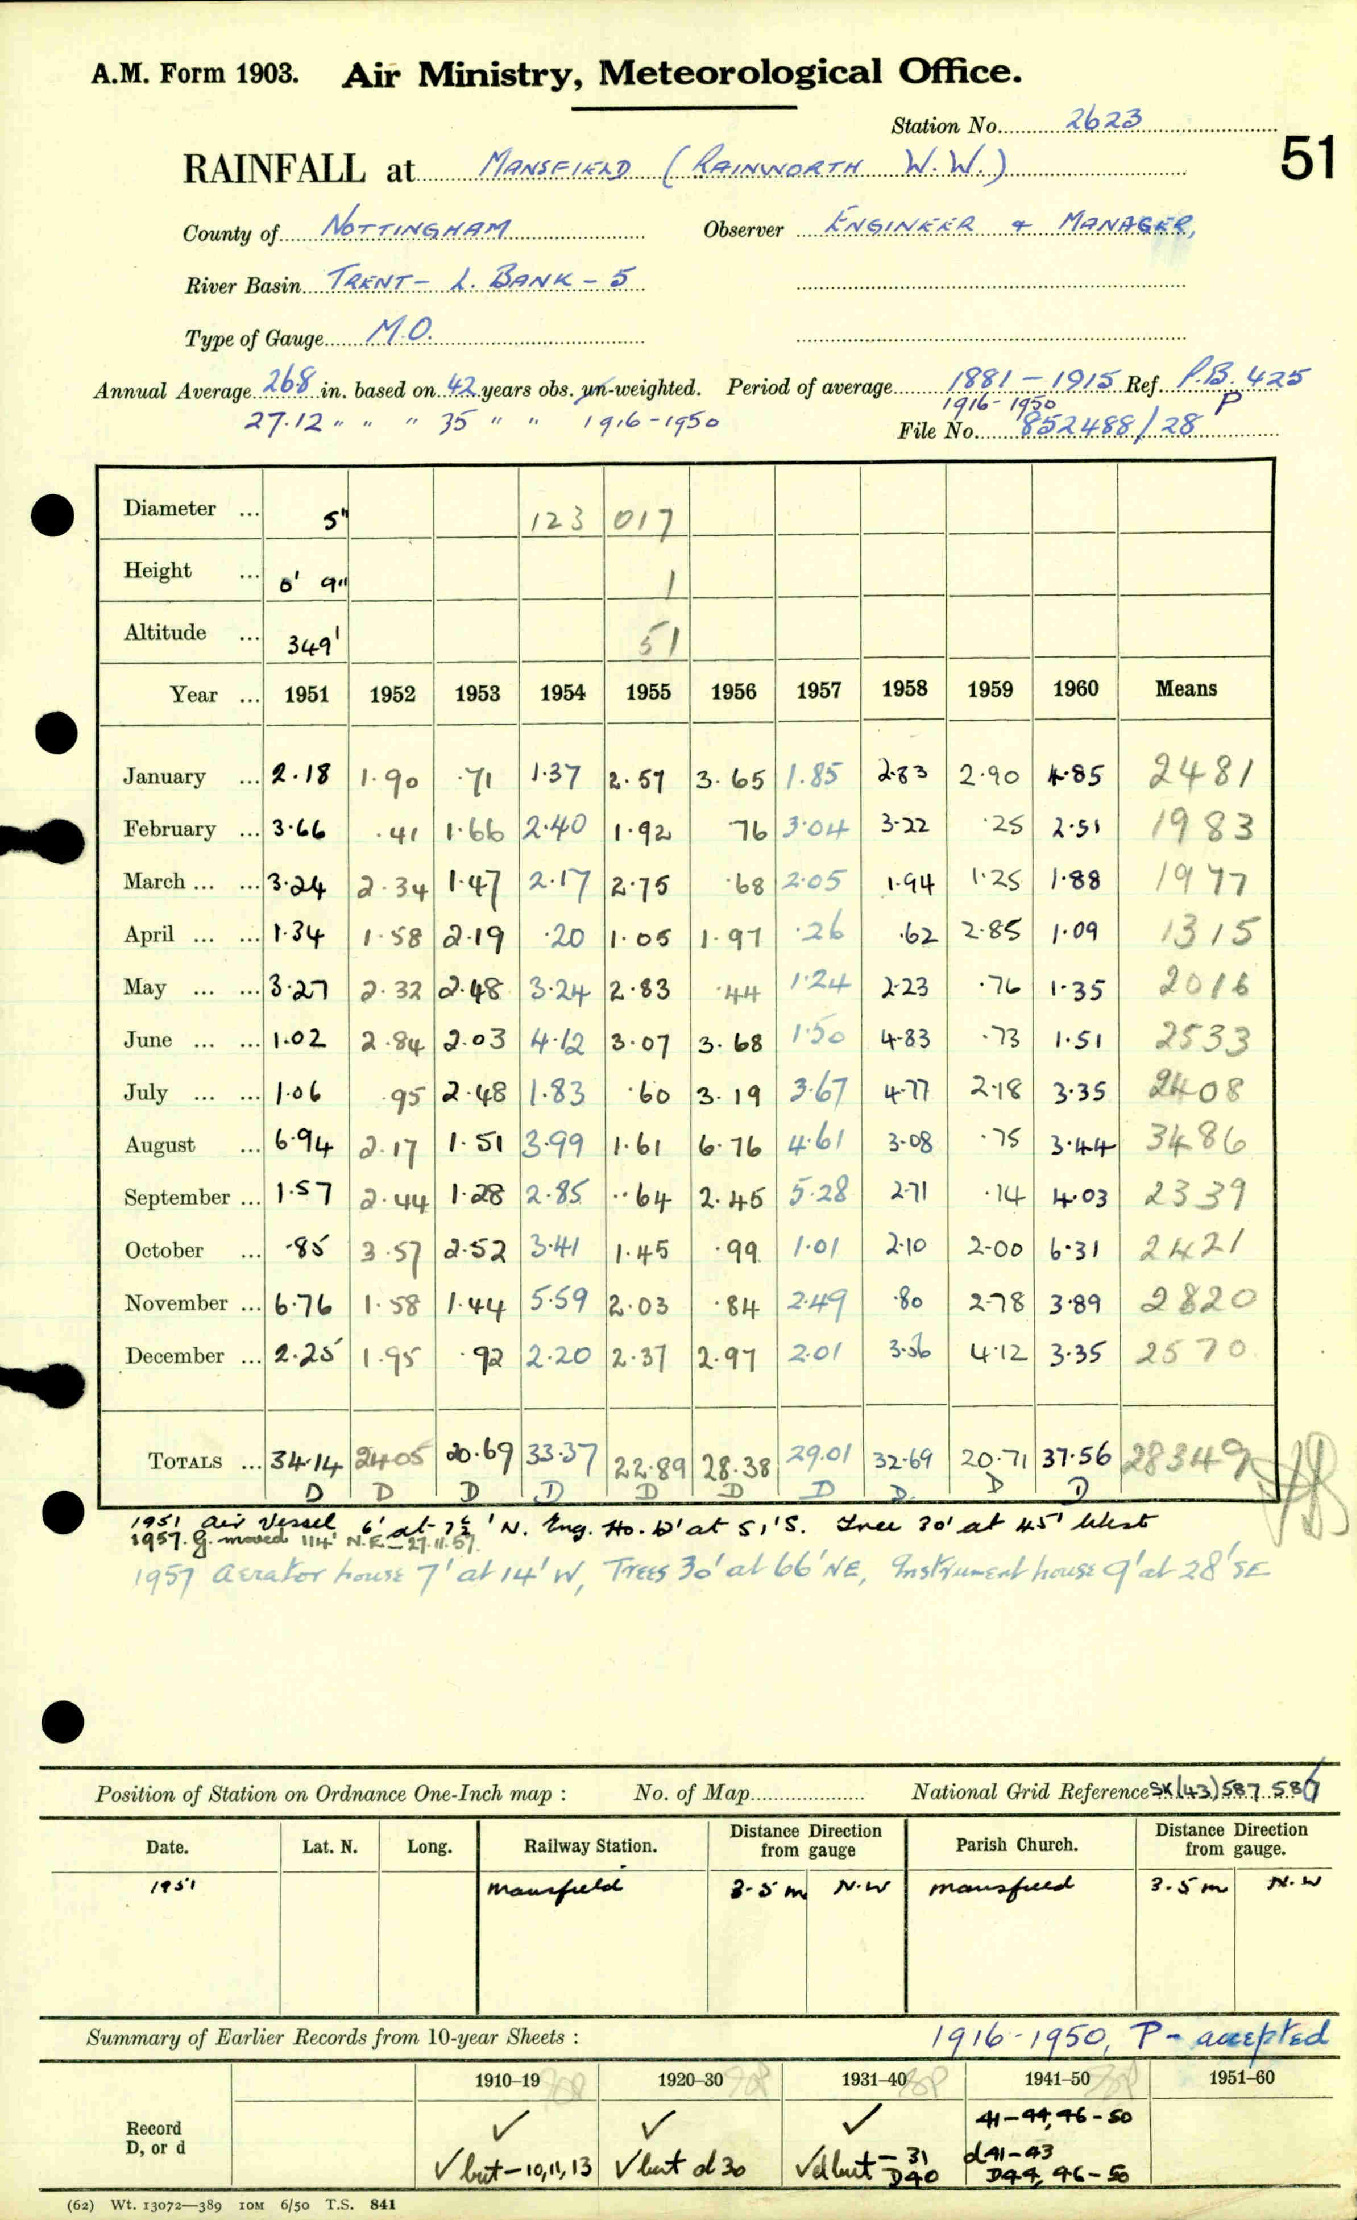 A.M. Form 1903. Air Ministry, Meteorological Office.
Station No. 2623
51
RAINFALL at MANSFIELD (RAINWORTH W.W.)
County of NOTTINGHAM Observer ENGINEER & MANAGER,
River Basin TRENT - L. BANK - 5
Type of Gauge M.O.
Annual Average 26.8 in. based on 42 years obs. un-weighted. Period of average 1881 - 1915 Ref. P.B. 425
1916 - 1950 P
27.12 " " " 35 " " 1916-1950
File No. 852488/28
Diameter ... 5" 123 017
Height ... 0' 9" 1
Altitude ... 349' 51
Year ... 1951 1952 1953 1954 1955 1956 1957 1958 1959 1960 Means
January ... 2.18 1.90 .71 1.37 2.57 3.65 1.85 2.83 2.90 4.85 2481
February ... 3.66 .41 1.66 2.40 1.92 76 3.04 3.22 .25 2.51 1983
March ... ... 3.24 2.34 1.47 2.17 2.75 .68 2.05 1.94 1.25 1.88 1977
April ... ... 1.34 1.58 2.19 .20 1.05 1.97 .26 .62 2.85 1.09 1315
May ... ... 3.27 2.32 2.48 3.24 2.83 .44 1.24 2.23 .76 1.35 2016
June ... ... 1.02 2.84 2.03 4.12 3.07 3.68 1.50 4.83 .73 1.51 2533
July ... ... 1.06 .95 2.48 1.83 .60 3.19 3.67 4.77 2.18 3.35 2408
August ... 6.94 2.17 1.51 3.99 1.61 6.76 4.61 3.08 .75 3.44 3486
September ... 1.57 2.44 1.28 2.85 .64 2.45 5.28 2.71 .14 4.03 2339
October ... .85 3.57 2.52 3.41 1.45 .99 1.01 2.10 2.00 6.31 2421
November ... 6.76 1.58 1.44 5.59 2.03 .84 2.49 .80 2.78 3.89 2820
December ... 2.25 1.95 .92 2.20 2.37 2.97 2.01 3.56 4.12 3.35 2570
TOTALS ... 34.14 24.05 20.69 33.37 22.89 28.38 29.01 32.69 20.71 37.56 28349
D D D D D D D D D D
1951 Air Vessel 6' at 7½' N. Eng. Ho. at 51'S. Tree 30' at 45' West
1957. G. moved 114' N.E - 27.11.57.
1957 Aerator house 7' at 14' W, Trees 30' at 66' NE, Instrument house 9' at 28' SE
Position of Station on Ordnance One-Inch map : No. of Map National Grid Reference SK(43)587 586
Date. Lat. N. Long. Railway Station. Distance Direction from gauge Parish Church. Distance Direction from gauge.
1951 Mansfield 3.5 m N.W Mansfield 3.5 m N.W
Summary of Earlier Records from 10-year Sheets : 1916-1950, P - accepted
1910–19 1920–30 1931–40 1941–50 1951–60
Record ✓ ✓ ✓ 41-44, 46-50
D, or d ✓ but - 10, 11, 13 ✓ but d 30 ✓ d but - 31 D40 d41-43 D44, 46-50
(62) Wt. 13072—389 10M 6/50 T.S. 841